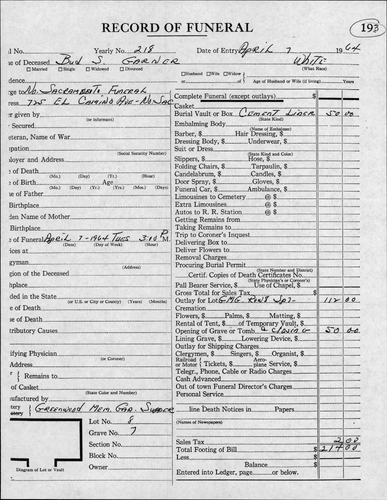 RECORD OF FUNERAL
193
l No. Yearly No. 218 Date of Entry April 7 1964
e of Deceased Bud S GARNER White
Married Single Widowed Divorced (What Race)
dence Husband Wife Widow of Age of Husband or Wife (if living) Years
ge to No. Sacramento Funeral
Complete Funeral (except outlays) $
ress 725 EL CAMINO AVE - No SAC
Casket
r given by (or informant)
Burial Vault or Box CEMENT LINER 50 00
(State Kind)
Secured
Embalming Body
(Name of Embalmer)
teran, Name of War
Barber, $ Hair Dressing, $
pation (Social Security Number)
Dressing Body, $ Underwear, $
Suit or Dress
(State Kind and Color)
oyer and Address
Slippers, $ Hose, $
e of Death (Mo.) (Day) (Yr.) (Hour)
Folding Chairs, $ Tarpaulin, $
Candelabrum, $ Candles, $
of Birth Age
Door Spray, $ Gloves, $
(Mo.) (Day) (Yr.) (Yrs.) (Mo.) (Days)
e of Father
Funeral Car, $ Ambulance, $
Limousines to Cemetery @ $
Birthplace
Extra Limousines @ $
den Name of Mother
Autos to R. R. Station @ $
Getting Remains from
Birthplace
Taking Remains to
of Funeral April 7-1964 Tues 3:10 P.M.
(Date) (Day of Week) (Hour)
Trip to Coroner's Inquest
Delivering Box to
ices at
Deliver Flowers to
Removal Charges
gyman
Procuring Burial Permit
(State Number and District)
gion of the Deceased
Certif. Copies of Death Certificates No.
(State Physician's or Coroner's)
hplace
Pall Bearer Service, $ Use of Chapel, $
Gross Total for Sales Tax
ded in the State (or U.S. or City or County) (Years) (Months)
Outlay for Lot 112 00
e of Death
Cremation
Flowers, $ Palms, $ Matting, $
tributory Causes
Rental of Tent, $ of Temporary Vault, $
Opening of Grave or Tomb & Closing 50 00
Lining Grave, $ Lowering Device, $
Outlay for Shipping Charges
ifying Physician (or Coroner)
Clergymen, $ Singers, $ Organist, $
Address
Railroad or Motor Tickets, $ Aeroplane Service, $
Telegr., Phone, Cable or Radio Charges
Remains to
Cash Advanced
Out of town Funeral Director's Charges
of Casket (State Color and Number)
Personal Service
ufactured by
Greenwood Mem. Gar.
line Death Notices in Papers
(Names of Newspapers)
Lot No. 8
Grave No. 7
Section No.
Sales Tax 2.00
Total Footing of Bill $ 214 00
Block No.
Less $
Owner
Balance $
Diagram of Lot or Vault
Entered into Ledger, page or below.